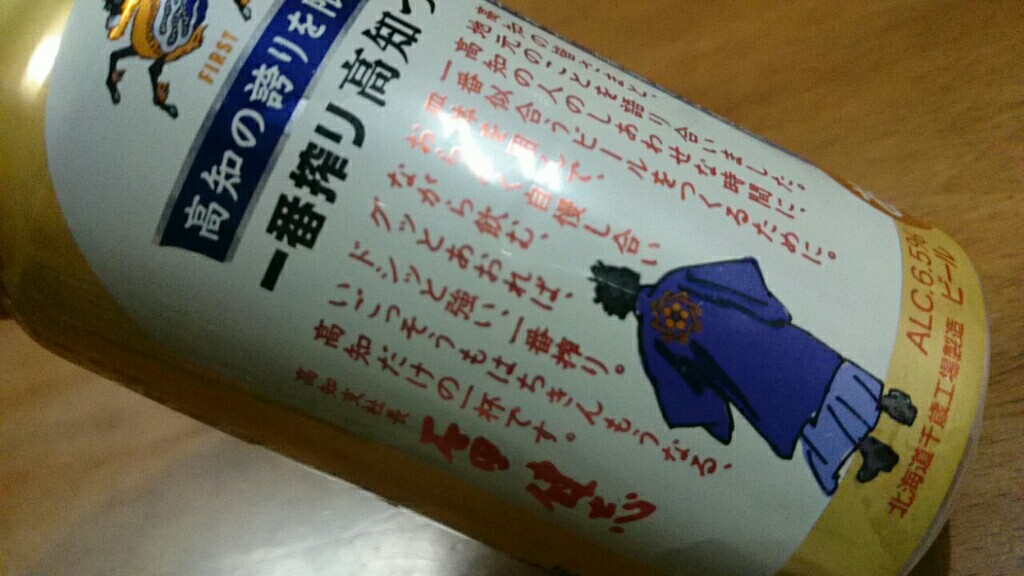 FIRST
高知の誇りを
一番搾り 高知
高知の皆さまと、
地元のことを語り合いました。
高知の人のしあわせな時間に、
一番似合うビールをつくるために。
自慢し合い
ながら飲む、
グッとあおれば、
ドシッと強い一番搾り。
いごっそうもはちきんもうなる、
高知だけの一杯です。
高知支社長
ALC.6.5% ビール
北海道千歳工場製造